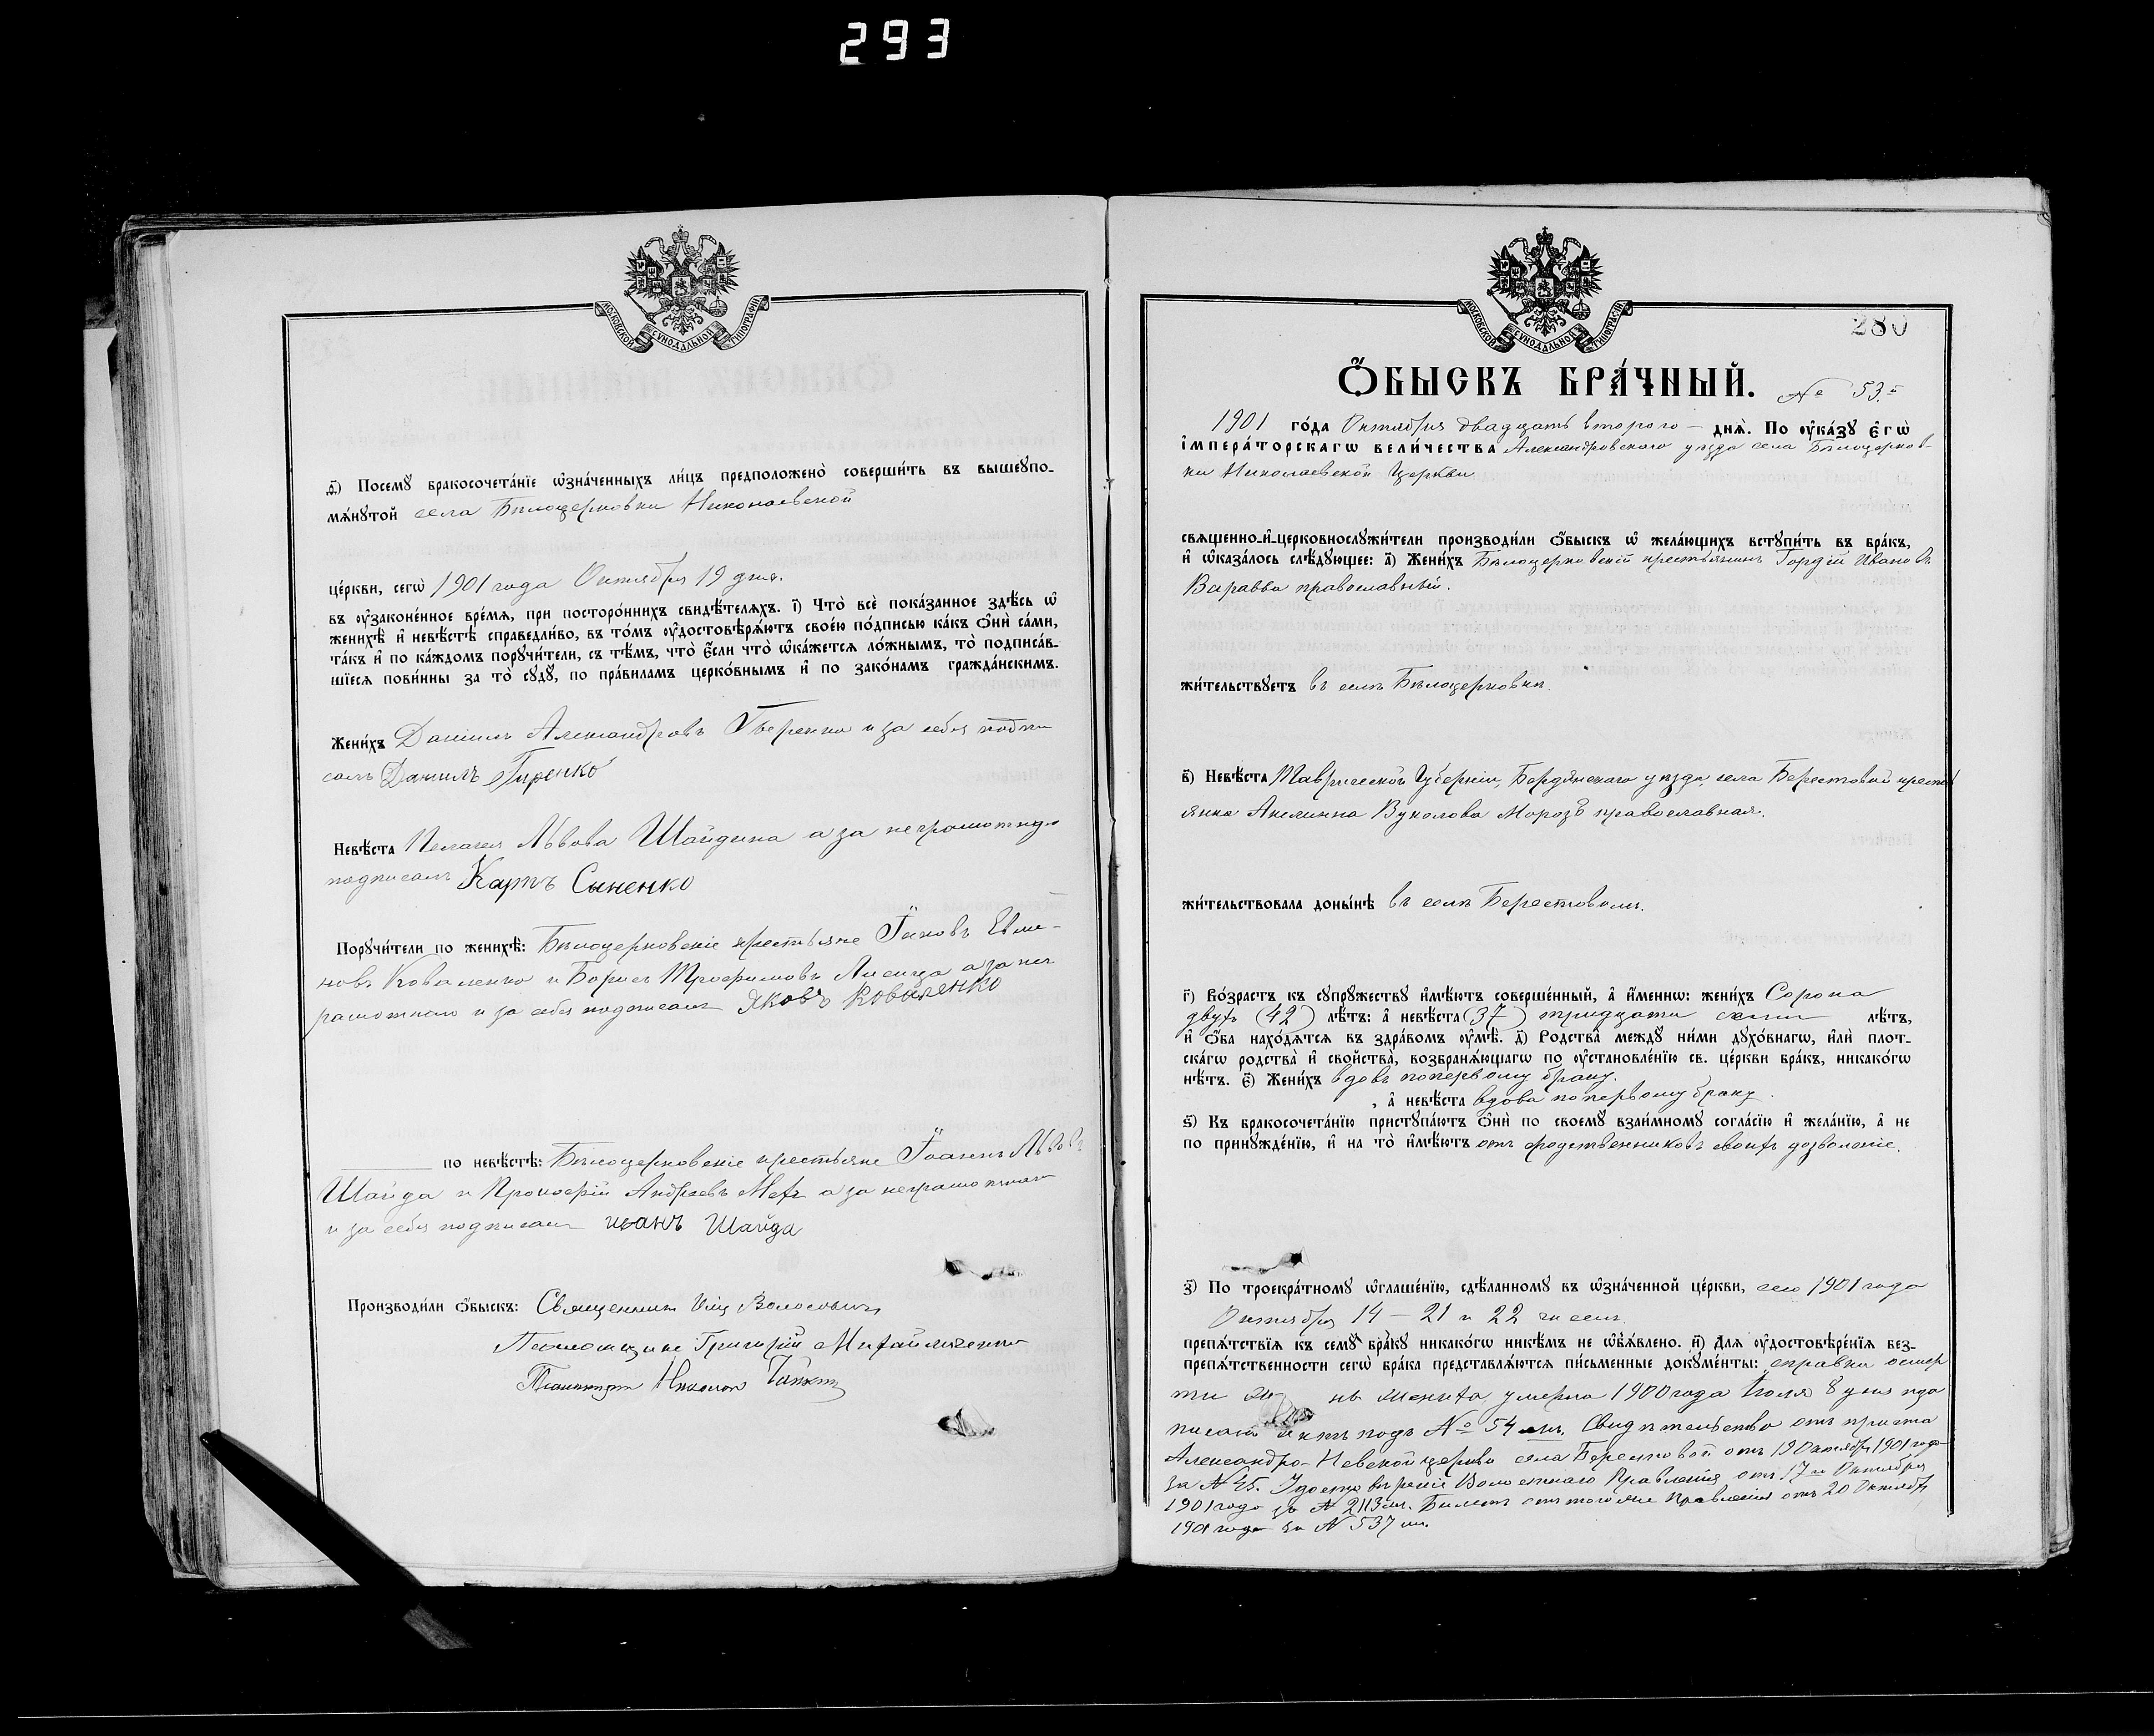 293
МОСКОВСКОЙ СУНОДАЛЬНОЙ ТИПОГРАФІИ
ѳ҃) Посемꙋ̀ бракосочета́нїе ѡ҆зна́ченныхъ ли́цъ предположено̀ соверши́ть въ вышеꙋпо-
мѧ́нꙋтой села Бѣлоцерковки Николаевской
це́ркви, сегѡ̀ 1901 года Октября 19 дня.
въ ᲂу҆зако́ненное вре́мѧ, при посторо́ннихъ свидѣ́телѧхъ. і҃) Что̀ всѐ пока́занное здѣ́сь ѡ҆
женихѣ̀ и҆ невѣ́стѣ справедли́во, въ то́мъ ᲂу҆достовѣрѧ́ютъ свое́ю по́дписью ка́къ ѻ҆нѝ са́ми,
та́къ и҆ по ка́ждомъ порꙋчи́тели, съ тѣ́мъ, что̀ є҆́сли что̀ ѡ҆ка́жетсѧ ло́жнымъ, то̀ подписа́в-
шїесѧ пови́нны за то̀ сꙋдꙋ̀, по пра́виламъ церко́внымъ и҆ по зако́намъ гражда́нскимъ.
Жени́хъ Даніилъ Александровъ Гвѣренко и за себя подпи
салъ Данилъ Гиренко
Невѣ́ста Пелагея Львова Шайдина а за неграмотную
подписалъ Карпъ Сыненко
Порꙋчи́тели по женихѣ̀: Бѣлоцерковскіе крестьяне Іаковъ Евме-
новъ Коваленко и Борисъ Трофимовъ Лисица а за нег
рамотнаго и за себя подписалъ Яковъ Коваленко
по невѣ́стѣ: Бѣлоцерковскіе крестьяне Іоаннъ Львовъ
Шайда и Прокофій Андреевъ Мех а за неграмотнаго
и за себя подписалъ иванъ Шайда
Производи́ли ѻ҆́быскъ: Священникъ Волосовичъ
Григорій Михайличенко
Николай
МОСКОВСКОЙ СУНОДАЛЬНОЙ ТИПОГРАФІИ
280
Ѻ҆́БЫСКЪ БРА́ЧНЫЙ. № 53.й
1901 го́да Октября двадцать второго — днѧ̀. По ᲂу҆ка́зꙋ є҆гѡ̀
і҆мпера́торскагѡ вели́чества Александровского уѣзда села Бѣлоцерков-
ки Николаевской Церкви
свѧщенно-и҆-церковнослꙋжи́тели производи́ли ѻ҆́быскъ ѡ҆ жела́ющихъ встꙋпи́ть въ бра́къ,
и҆ ѡ҆каза́лось слѣ́дꙋющее: а҃) Жени́хъ Бѣлоцерковскій крестьянинъ Гордій Ивановъ
Варавва православный.
жи́тельствꙋетъ въ селѣ Бѣлоцерковкѣ.
в҃) Невѣ́ста Таврической Губерніи, Бердянского уѣзда, села Берестовой крестья
янка Акилина Вуколова Морозъ православная.
жи́тельствовала доны́нѣ въ селѣ Берестовомъ.
г҃) Во́зрастъ къ сꙋпрꙋ́жествꙋ и҆мѣ́ютъ соверше́нный, а҆ и҆́меннѡ: жени́хъ Сорока
двухъ (42) лѣ́тъ: а҆ невѣ́ста (37) тридцати семи лѣ́тъ,
и҆ ѻ҆́ба нахо́дѧтсѧ въ здра́вомъ ᲂу҆мѣ̀. д҃) Родства̀ междꙋ̀ ни́ми дꙋхо́внагѡ, и҆лѝ плот-
ска́гѡ родства̀ и҆ сво́йства, возбранѧ́ющагѡ по ᲂу҆становле́нїю св. це́ркви бра́къ, никако́гѡ
нѣ́тъ. є҃) Жени́хъ вдовъ по первому браку.
, а҆ невѣ́ста вдова по первому браку.
ѕ҃) Къ бракосочета́нїю пристꙋпа́ютъ ѻ҆нѝ по своемꙋ̀ взаи́мномꙋ согла́сїю и҆ жела́нїю, а҆ не
по принꙋжде́нїю, и҆ на то̀ и҆мѣ́ютъ отъ родственниковъ своихъ дозволеніе.
з҃) По троекра́тномꙋ ѡ҆глаше́нїю, сдѣ́ланномꙋ въ ѡ҆зна́ченной це́ркви, сего 1901 года
Октября 14 — 21 и 22 чиселъ
препѧ́тствїѧ къ семꙋ̀ бра́кꙋ никако́гѡ никѣ́мъ не ѡ҆б̾ѧ́влено. и҃) Длѧ ᲂу҆достовѣре́нїѧ без-
препѧ́тственности сегѡ̀ бра́ка представлѧ́ютсѧ пи́сьменные докꙋме́нты: справки о смер
ти жениха умерла 1900 года Іюля 8 дня
писана актъ подъ № 54 Свидѣтельство отъ причта
Александро-Невской церкви села Берестовой отъ 19 октября 1901 года
за № 45. Удостовѣреніе Волостнаго Правленія отъ 17го Октября
1901 года за № 2113 Билетъ отъ того же Правленія отъ 20 Октября
1901 года за № 537